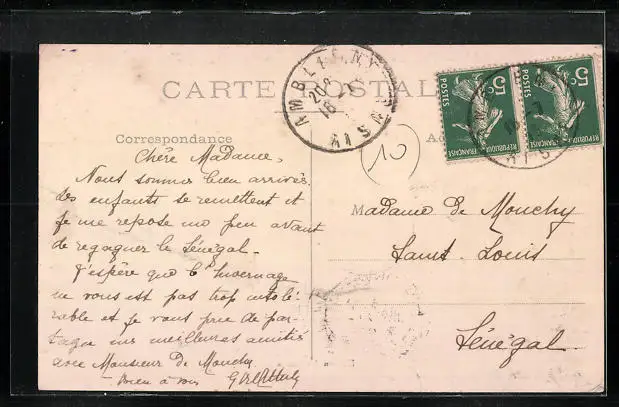 CARTE POSTALE
Correspondance
AMBLENY
AISNE
10
5c
POSTES
REPUBLIQUE FRANÇAISE
5c
POSTES
REPUBLIQUE FRANÇAISE
Chère Madame,
Nous sommes bien arrivés
les enfants se remettent et
je me repose un peu avant
de regagner le Sénégal.
J'espère que l'hivernage
ne vous est pas trop intolé-
rable et je vous prie de par-
tager mes meilleures amitiés
avec Monsieur de Mouchy
bien à vous
Madame de Mouchy
Saint Louis
Sénégal